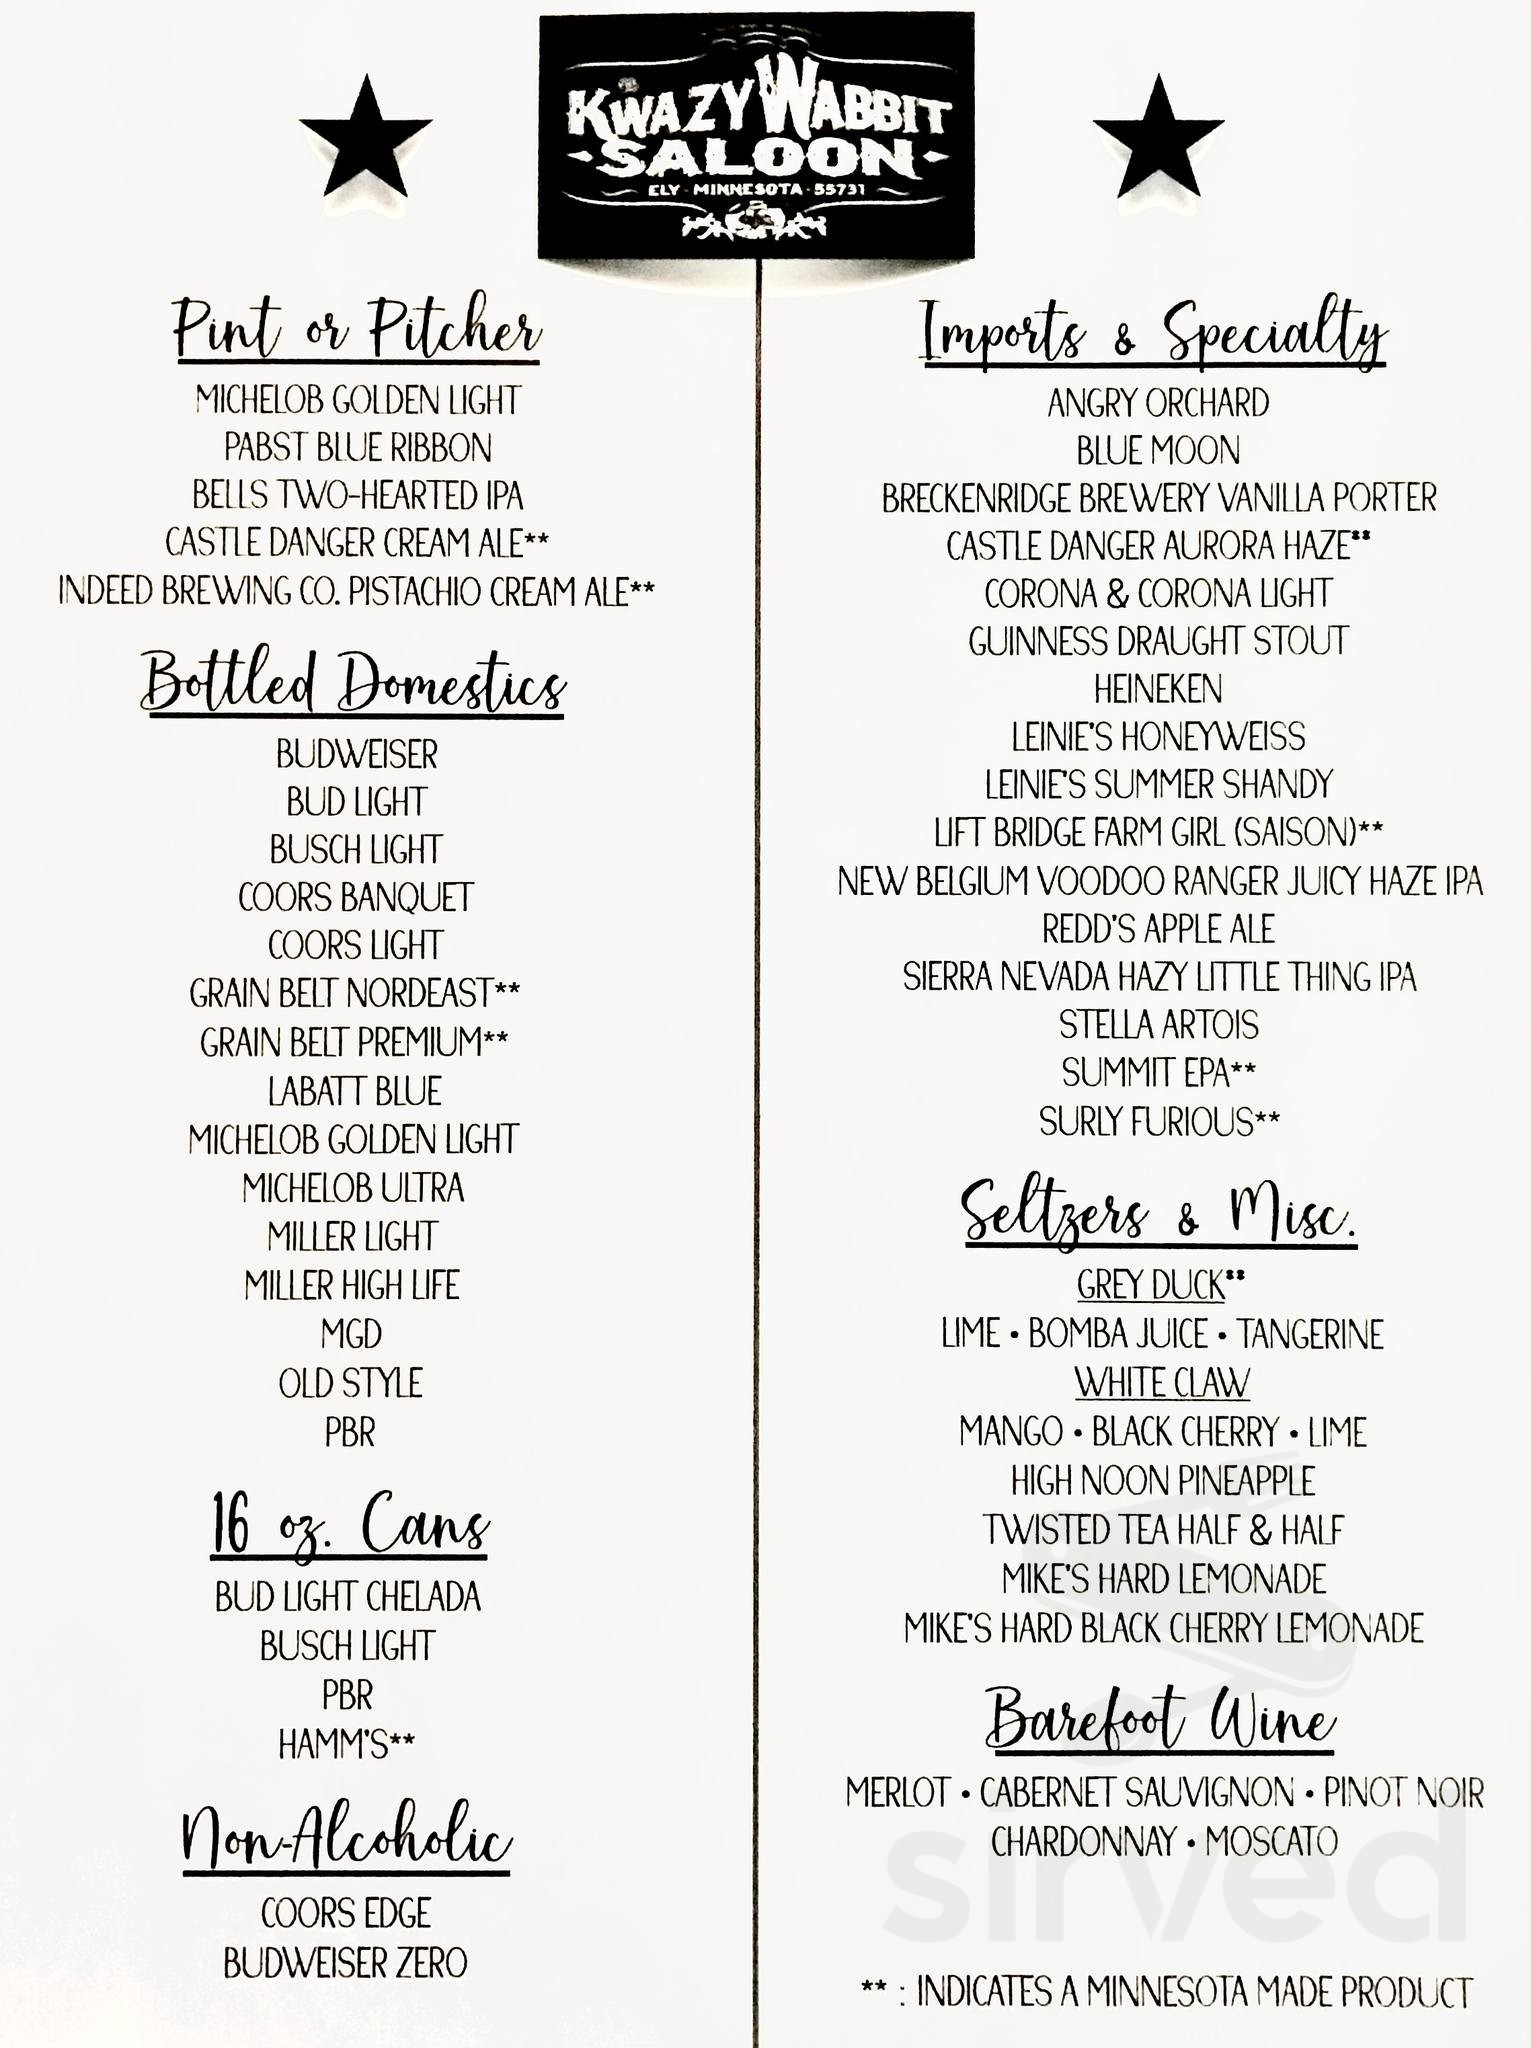 KWAZY WABBIT
SALOON
ELY · MINNESOTA · 55731
Pint or Pitcher
MICHELOB GOLDEN LIGHT
PABST BLUE RIBBON
BELLS TWO-HEARTED IPA
CASTLE DANGER CREAM ALE**
INDEED BREWING CO. PISTACHIO CREAM ALE**
Bottled Domestics
BUDWEISER
BUD LIGHT
BUSCH LIGHT
COORS BANQUET
COORS LIGHT
GRAIN BELT NORDEAST**
GRAIN BELT PREMIUM**
LABATT BLUE
MICHELOB GOLDEN LIGHT
MICHELOB ULTRA
MILLER LIGHT
MILLER HIGH LIFE
MGD
OLD STYLE
PBR
16 oz. Cans
BUD LIGHT CHELADA
BUSCH LIGHT
PBR
HAMM'S**
Non-Alcoholic
COORS EDGE
BUDWEISER ZERO
Imports & Specialty
ANGRY ORCHARD
BLUE MOON
BRECKENRIDGE BREWERY VANILLA PORTER
CASTLE DANGER AURORA HAZE**
CORONA & CORONA LIGHT
GUINNESS DRAUGHT STOUT
HEINEKEN
LEINIE'S HONEYWEISS
LEINIE'S SUMMER SHANDY
LIFT BRIDGE FARM GIRL (SAISON)**
NEW BELGIUM VOODOO RANGER JUICY HAZE IPA
REDD'S APPLE ALE
SIERRA NEVADA HAZY LITTLE THING IPA
STELLA ARTOIS
SUMMIT EPA**
SURLY FURIOUS**
Seltzers & Misc.
GREY DUCK**
LIME • BOMBA JUICE • TANGERINE
WHITE CLAW
MANGO • BLACK CHERRY • LIME
HIGH NOON PINEAPPLE
TWISTED TEA HALF & HALF
MIKE'S HARD LEMONADE
MIKE'S HARD BLACK CHERRY LEMONADE
Barefoot Wine
MERLOT • CABERNET SAUVIGNON • PINOT NOIR
CHARDONNAY • MOSCATO
sirved
** : INDICATES A MINNESOTA MADE PRODUCT